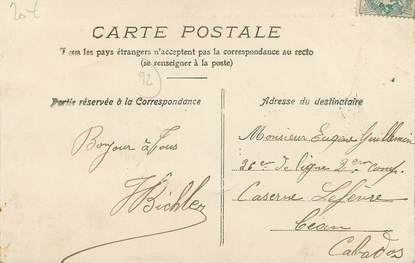 20t
CARTE POSTALE
Tous les pays étrangers n'acceptent pas la correspondance au recto
(se renseigner à la poste)
92
Partie réservée à la Correspondance
Adresse du destinataire
Bonjour à Tous
Bichler
Monsieur Eugène Guillemin
36er de ligne 2er comp.
Caserne Lefèvre
Caen
Calvados